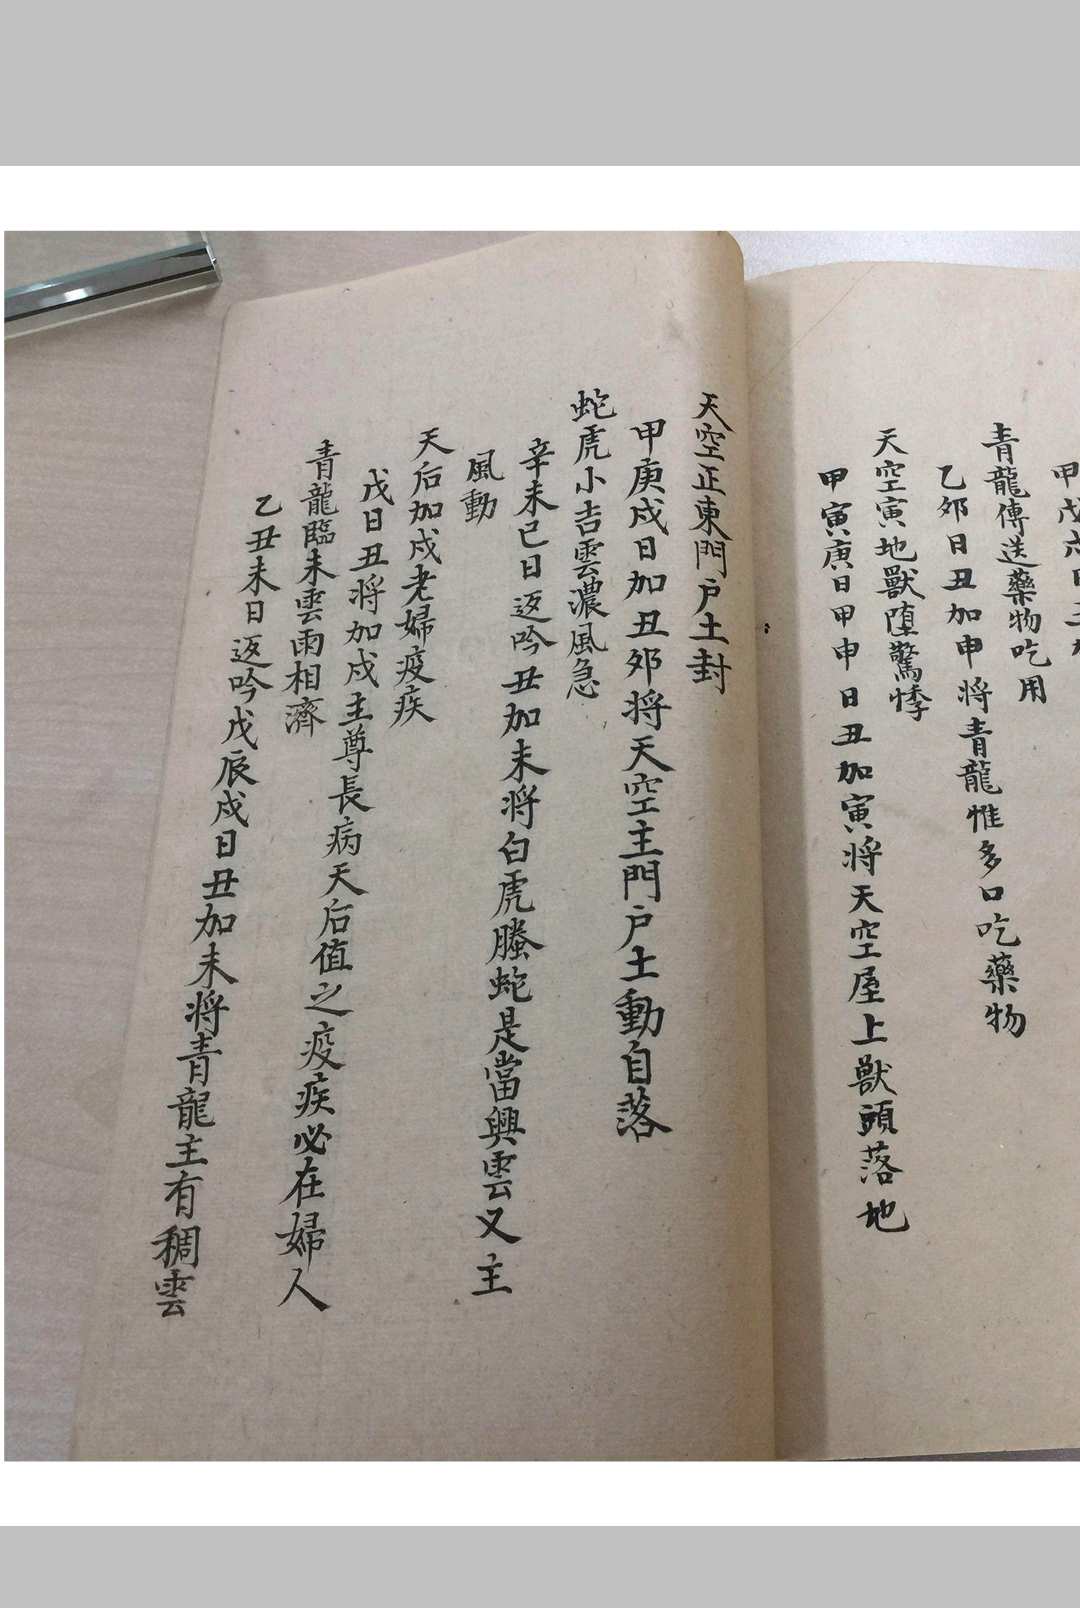 甲戊戌日丑加
青龍傳送藥物吃用
乙夘日丑加申将青龍惟多口吃藥物
天空寅地獸堕驚悸
甲寅庚日甲申日丑加寅将天空屋上獸頭落地
天空正東門户土封
甲庚戌日加丑夘将天空主門户土動自落
蛇虎小吉雲濃風急
辛未巳日返吟丑加未将白虎螣蛇是當興雲又主
風動
天后加戌老婦疫疾
戊日丑将加戌主尊長病天后值之疫疾必在婦人
青龍臨未雲雨相濟
乙丑未日返吟戊辰戌日丑加未将青龍主有稠雲